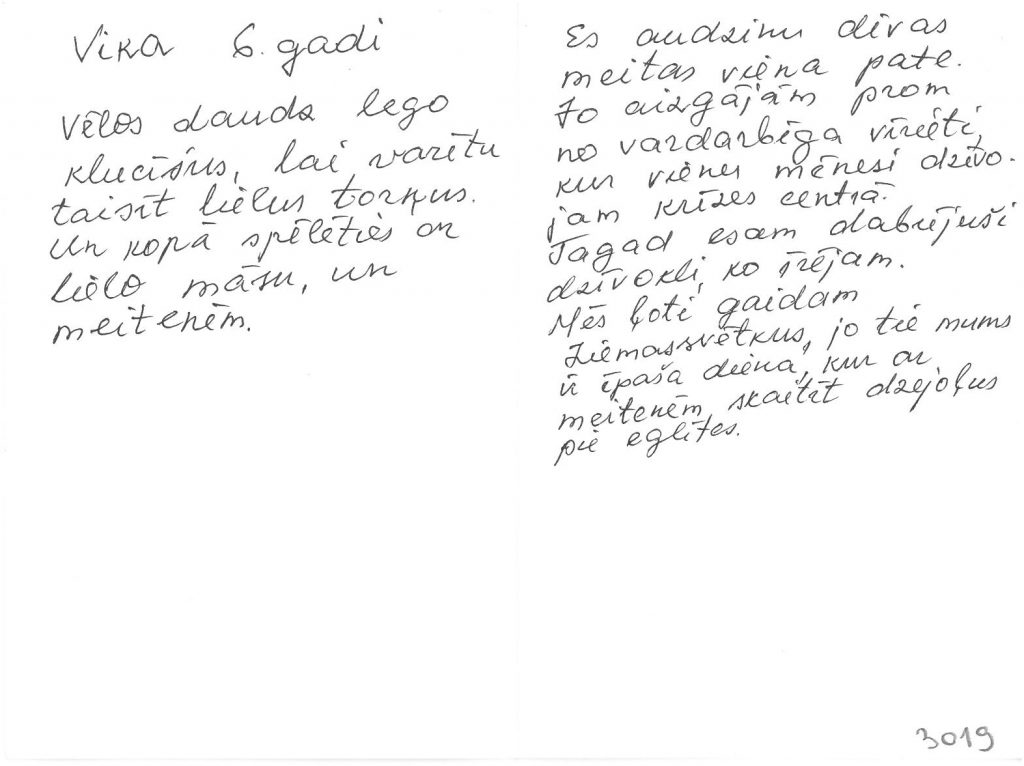 Vika 6. gadi
Vēlos daudz lego
klucīšus, lai varētu
taisīt lielus torņus.
Un kopā spēlēties ar
lielo māsu, un
meitenēm.
Es audzinu divas
meitas viena pate.
Jo aizgājām prom
no vardarbīga vīrieti,
kur vienu mēnesi dzīvo-
jam krīzes centrā.
Tagad esam dabrējuši
dzīvokli, ko īrējam.
Mēs ļoti gaidam
Ziemassvētkus, jo tie mums
ir īpaša diena, kur ar
meitenēm, skaitīt dzejoļus
pie eglītes.
3019